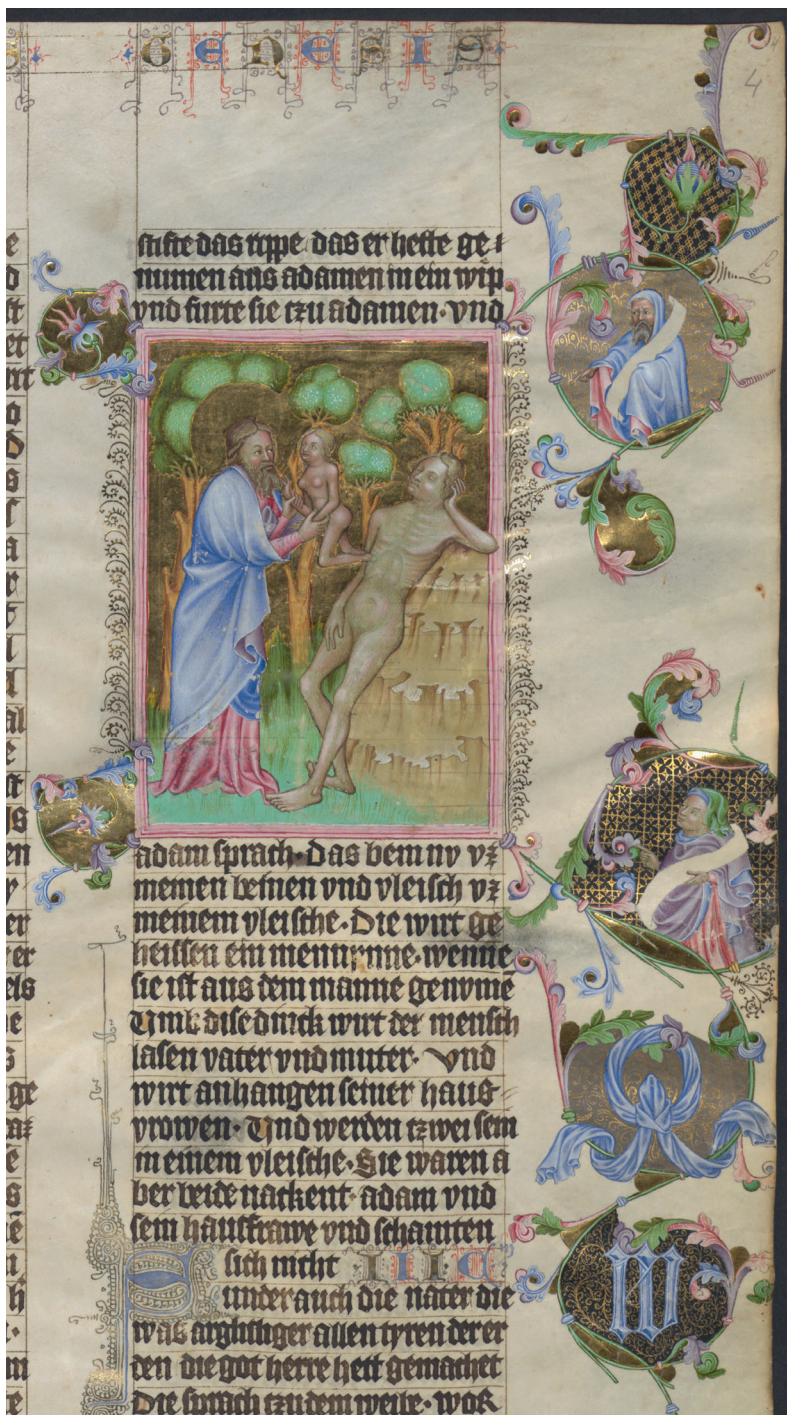 GENESIS
4
stifte das rippe das er hette ge
numen aus adamen in ein wip
vnd furte sie tzu adamen· vnd
adam sprach· Das bein nv vz
meinen beinen vnd vleisch vz
meinem vleische· Die wirt ge
heissen ein mennynne· wenne
sie ist aus dem manne genvmē
Vmb dise dinck wirt der mensch
lasen vater vnd muter· Vnd
wirt anhangen seiner haus
vrowen· Vnd werden tzwei sein
in einem vleische· Sie waren a
ber beide nackent· adam vnd
sein hausfrawe vnd schamten
sich nicht III C
under auch die nater die
was arghlistiger allen tyren der er
den die got herre hett gemachet
Die sprach tzu dem weibe· wor
W